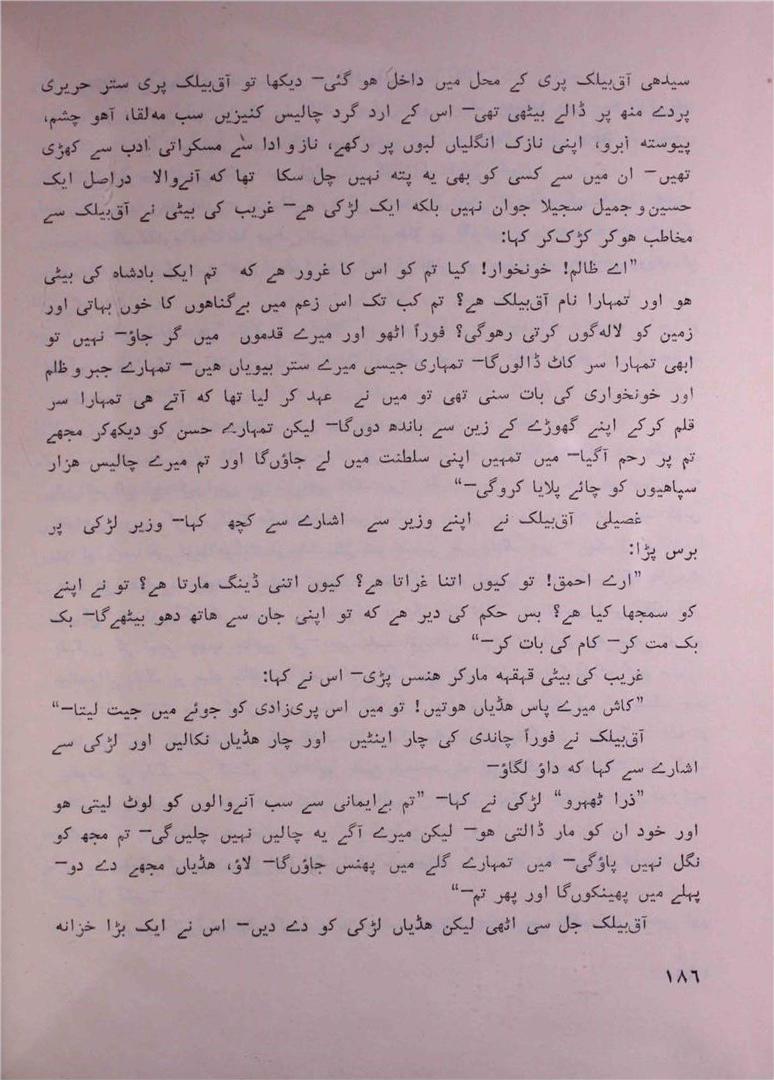 سیدھی آق‌بیلک پری کے محل میں داخل ھو گئی— دیکھا تو آق‌بیلک پری ستر حریری
پردے منھ پر ڈالے بیٹھی تھی— اس کے ارد گرد چالیس کنیزیں سب مہ‌لقا، آھو چشم،
پیوستہ ابرو، اپنی نازک انگلیاں لبوں پر رکھے، ناز و ادا سے مسکراتی ادب سے کھڑی
تھیں— ان میں سے کسی کو بھی یہ پتہ نہیں چل سکا تھا کہ آنے‌والا دراصل ایک
حسین و جمیل سجیلا جوان نہیں بلکہ ایک لڑکی ھے— غریب کی بیٹی نے آق‌بیلک سے
مخاطب ھوکر کڑک‌کر کہا:
”اے ظالم! خونخوار! کیا تم کو اس کا غرور ھے کہ تم ایک بادشاہ کی بیٹی
ھو اور تمہارا نام آق‌بیلک ھے؟ تم کب تک اس زعم میں بے‌گناھوں کا خون بہاتی اور
زمین کو لالہ‌گوں کرتی رھوگی؟ فوراً اٹھو اور میرے قدموں میں گر جاؤ— نہیں تو
ابھی تمہارا سر کاٹ ڈالوں‌گا— تمہاری جیسی میرے ستر بیویاں ھیں— تمہارے جبر و ظلم
اور خونخواری کی بات سنی تھی تو میں نے عہد کر لیا تھا کہ آتے ھی تمہارا سر
قلم کرکے اپنے گھوڑے کے زین سے باندھ دوں‌گا— لیکن تمہارے حسن کو دیکھ‌کر مجھے
تم پر رحم آگیا— میں تمہیں اپنی سلطنت میں لے جاؤں‌گا اور تم میرے چالیس ھزار
سپاھیوں کو چائے پلایا کروگی—“
غصیلی آق‌بیلک نے اپنے وزیر سے اشارے سے کچھ کہا— وزیر لڑکی پر
برس پڑا:
”ارے احمق! تو کیوں اتنا غراتا ھے؟ کیوں اتنی ڈینگ مارتا ھے؟ تو نے اپنے
کو سمجھا کیا ھے؟ بس حکم کی دیر ھے کہ تو اپنی جان سے ھاتھ دھو بیٹھے‌گا— بک
بک مت کر— کام کی بات کر—“
غریب کی بیٹی قہقہہ مارکر ھنس پڑی— اس نے کہا:
”کاش میرے پاس ھڈیاں ھوتیں! تو میں اس پری‌زادی کو جوئے میں جیت لیتا—“
آق‌بیلک نے فوراً چاندی کی چار اینٹیں اور چار ھڈیاں نکالیں اور لڑکی سے
اشارے سے کہا کہ داؤ لگاؤ—
”ذرا ٹھہرو“ لڑکی نے کہا— ”تم بے‌ایمانی سے سب آنے‌والوں کو لوٹ لیتی ھو
اور خود ان کو مار ڈالتی ھو— لیکن میرے آگے یہ چالیں نہیں چلیں‌گی— تم مجھ کو
نگل نہیں پاؤگی— میں تمہارے گلے میں پھنس جاؤں‌گا— لاؤ، ھڈیاں مجھے دے دو—
پہلے میں پھینکوں‌گا اور پھر تم—“
آق‌بیلک جل سی اٹھی لیکن ھڈیاں لڑکی کو دے دیں— اس نے ایک بڑا خزانہ
١٨٦